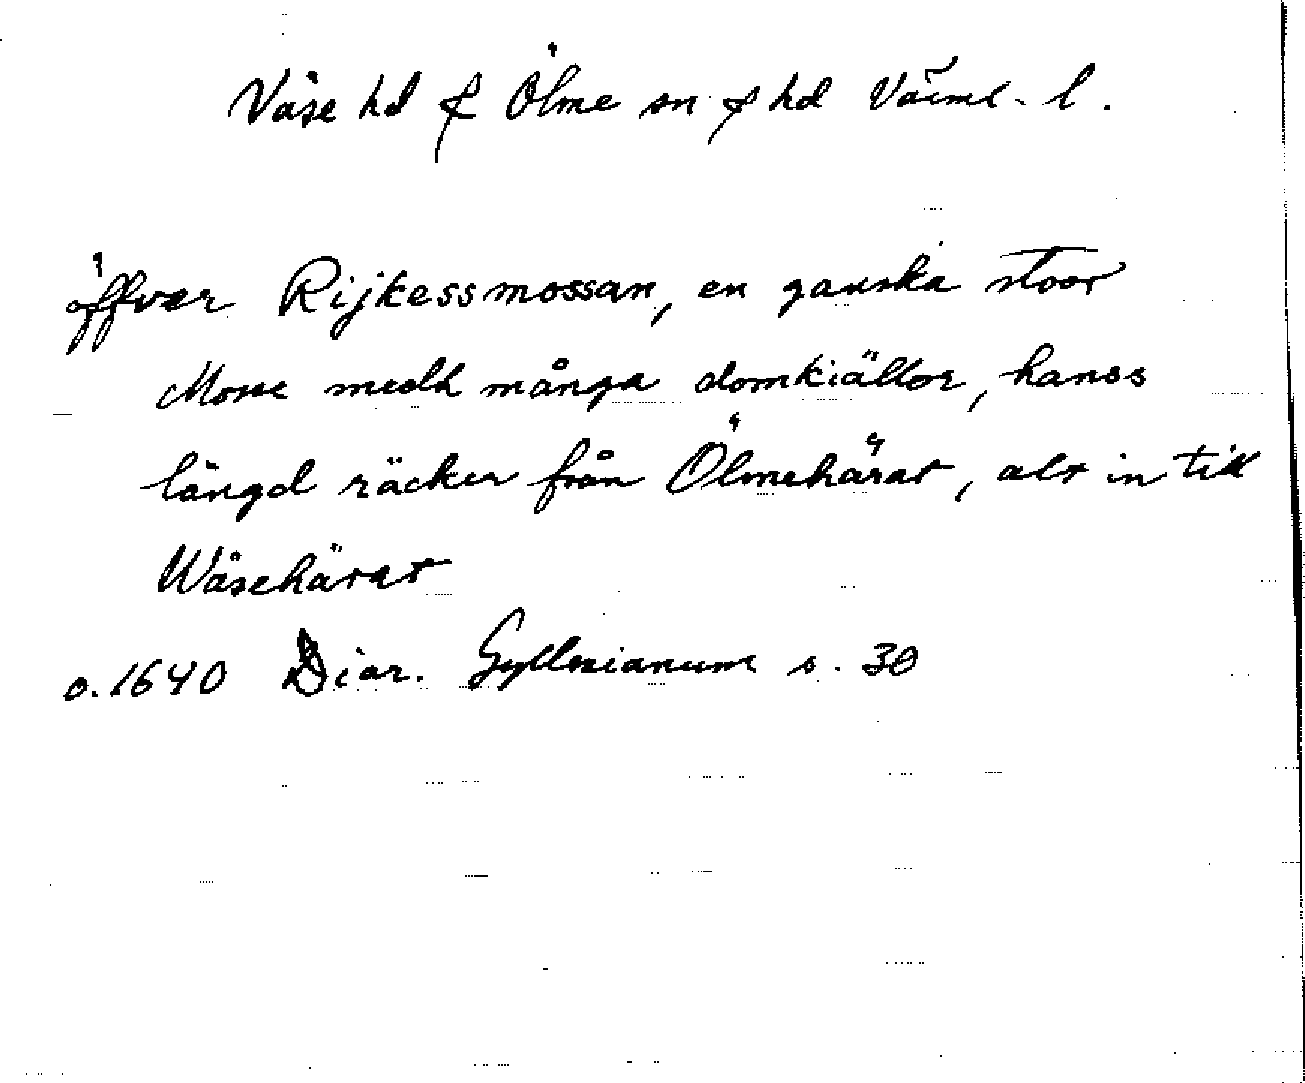 Väse hd & Ölme sn & hd Värml. l.
öffver Rijkessmossan, en ganska stoor
Mosse medh många domkiällor, hanss
längd räcker från Ölmehärat, alt in till
Wäsehärat
o. 1640 Diar. Gyllenianum s. 30